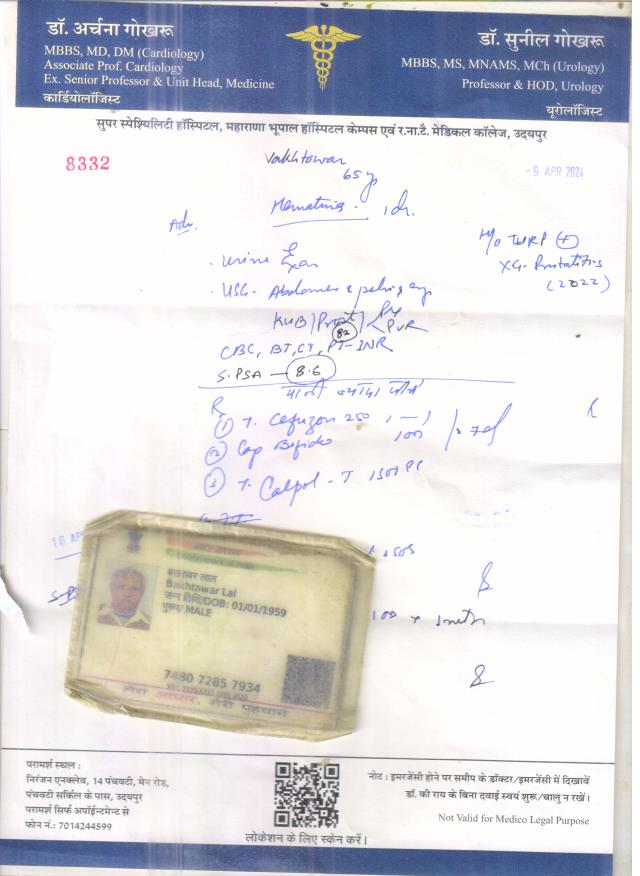 डॉ. अर्चना गोखरू
MBBS, MD, DM (Cardiology)
Associate Prof. Cardiology
Ex. Senior Professor & Unit Head, Medicine
कार्डियोलॉजिस्ट
डॉ. सुनील गोखरू
MBBS, MS, MNAMS, MCh (Urology)
Professor & HOD, Urology
यूरोलॉजिस्ट
सुपर स्पेश्यिलिटी हॉस्पिटल, महाराणा भूपाल हॉस्पिटल केम्पस एवं र.ना.टै. मेडिकल कॉलेज, उदयपुर
8332
Vakhtowar
65 y
- 9 APR 2024
Hematuria
Adv.
H/o TURP +
Prostatitis
(2022)
Urine
USG - Abdomen & pelvis
KUB/Prost/
PVR
82
CBC, BT, CT, PT-INR
S. PSA - 8.6
पानी ज्यादा पीये
R
① T. Cefuzon 250
② Cap
100
③ T. Calpol - T
SOS
100
बख्तावर लाल
Bakhtawar Lal
जन्म तिथि/DOB: 01/01/1959
पुरुष/ MALE
7480 7285 7934
मेरा आधार, मेरी पहचान
परामर्श स्थल :
निरंजन एनक्लेव, 14 पंचवटी, मेन रोड,
पंचवटी सर्किल के पास, उदयपुर
परामर्श सिर्फ अपॉईन्टमेन्ट से
फोन नं.: 7014244599
लोकेशन के लिए स्केन करें।
नोट : इमरजेंसी होने पर समीप के डॉक्टर/इमरजेंसी में दिखावें
डॉ. की राय के बिना दवाई स्वयं शुरू/चालु न रखें।
Not Valid for Medico Legal Purpose